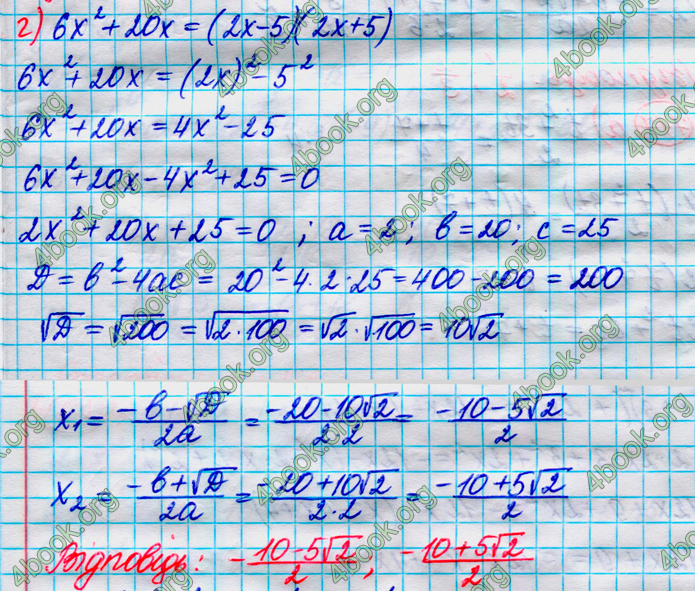 г) 6x² + 20x = (2x-5)(2x+5)
6x² + 20x = (2x)² - 5²
6x² + 20x = 4x² - 25
6x² + 20x - 4x² + 25 = 0
2x² + 20x + 25 = 0 ; a = 2; b = 20; c = 25
D = b² - 4ac = 20² - 4·2·25 = 400 - 200 = 200
√D = √200 = √2·100 = √2·√100 = 10√2
x₁ = (-b-√D)/2a = (-20-10√2)/2·2 = (-10-5√2)/2
x₂ = (-b+√D)/2a = (-20+10√2)/2·2 = (-10+5√2)/2
Відповідь: (-10-5√2)/2, (-10+5√2)/2
4book.org